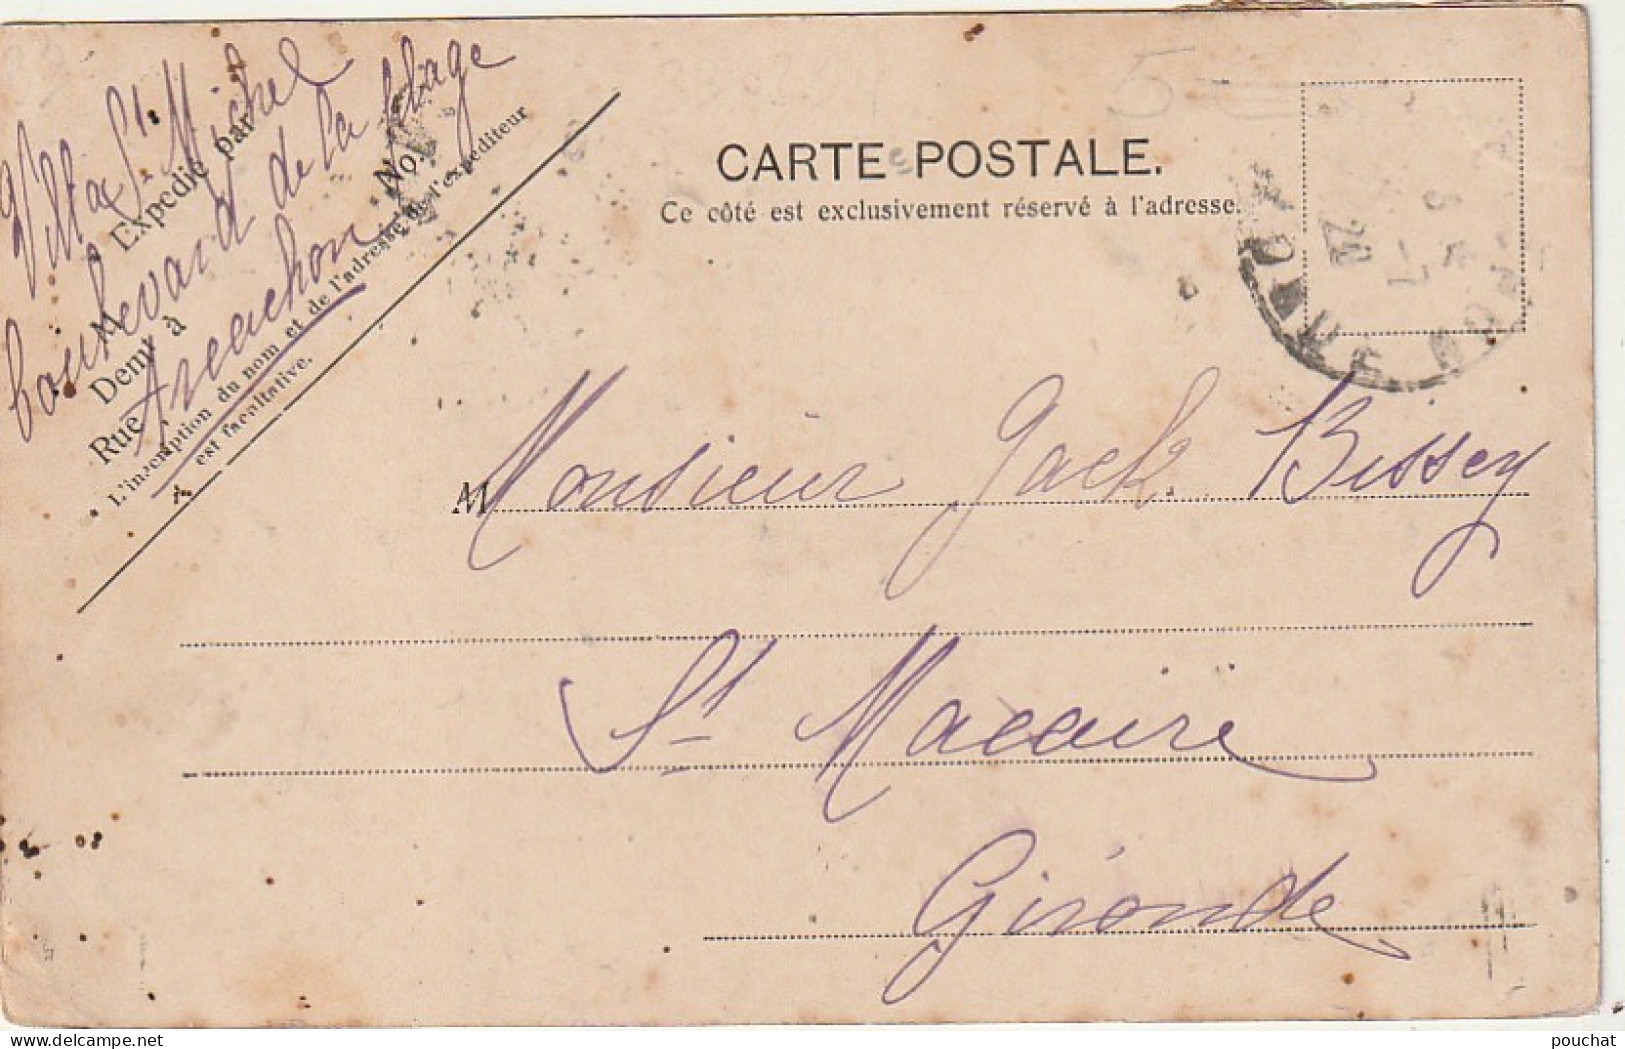 Villa St Michel
boulevard de la plage
Arcachon
Expédié par
M
Demt à
Rue
No.
L'inscription du nom et de l'adresse de l'expéditeur
est facultative.
5
CARTE POSTALE.
Ce côté est exclusivement réservé à l'adresse.
24
M Monsieur Jack Bissey
St Macaire
Gironde
pouchat